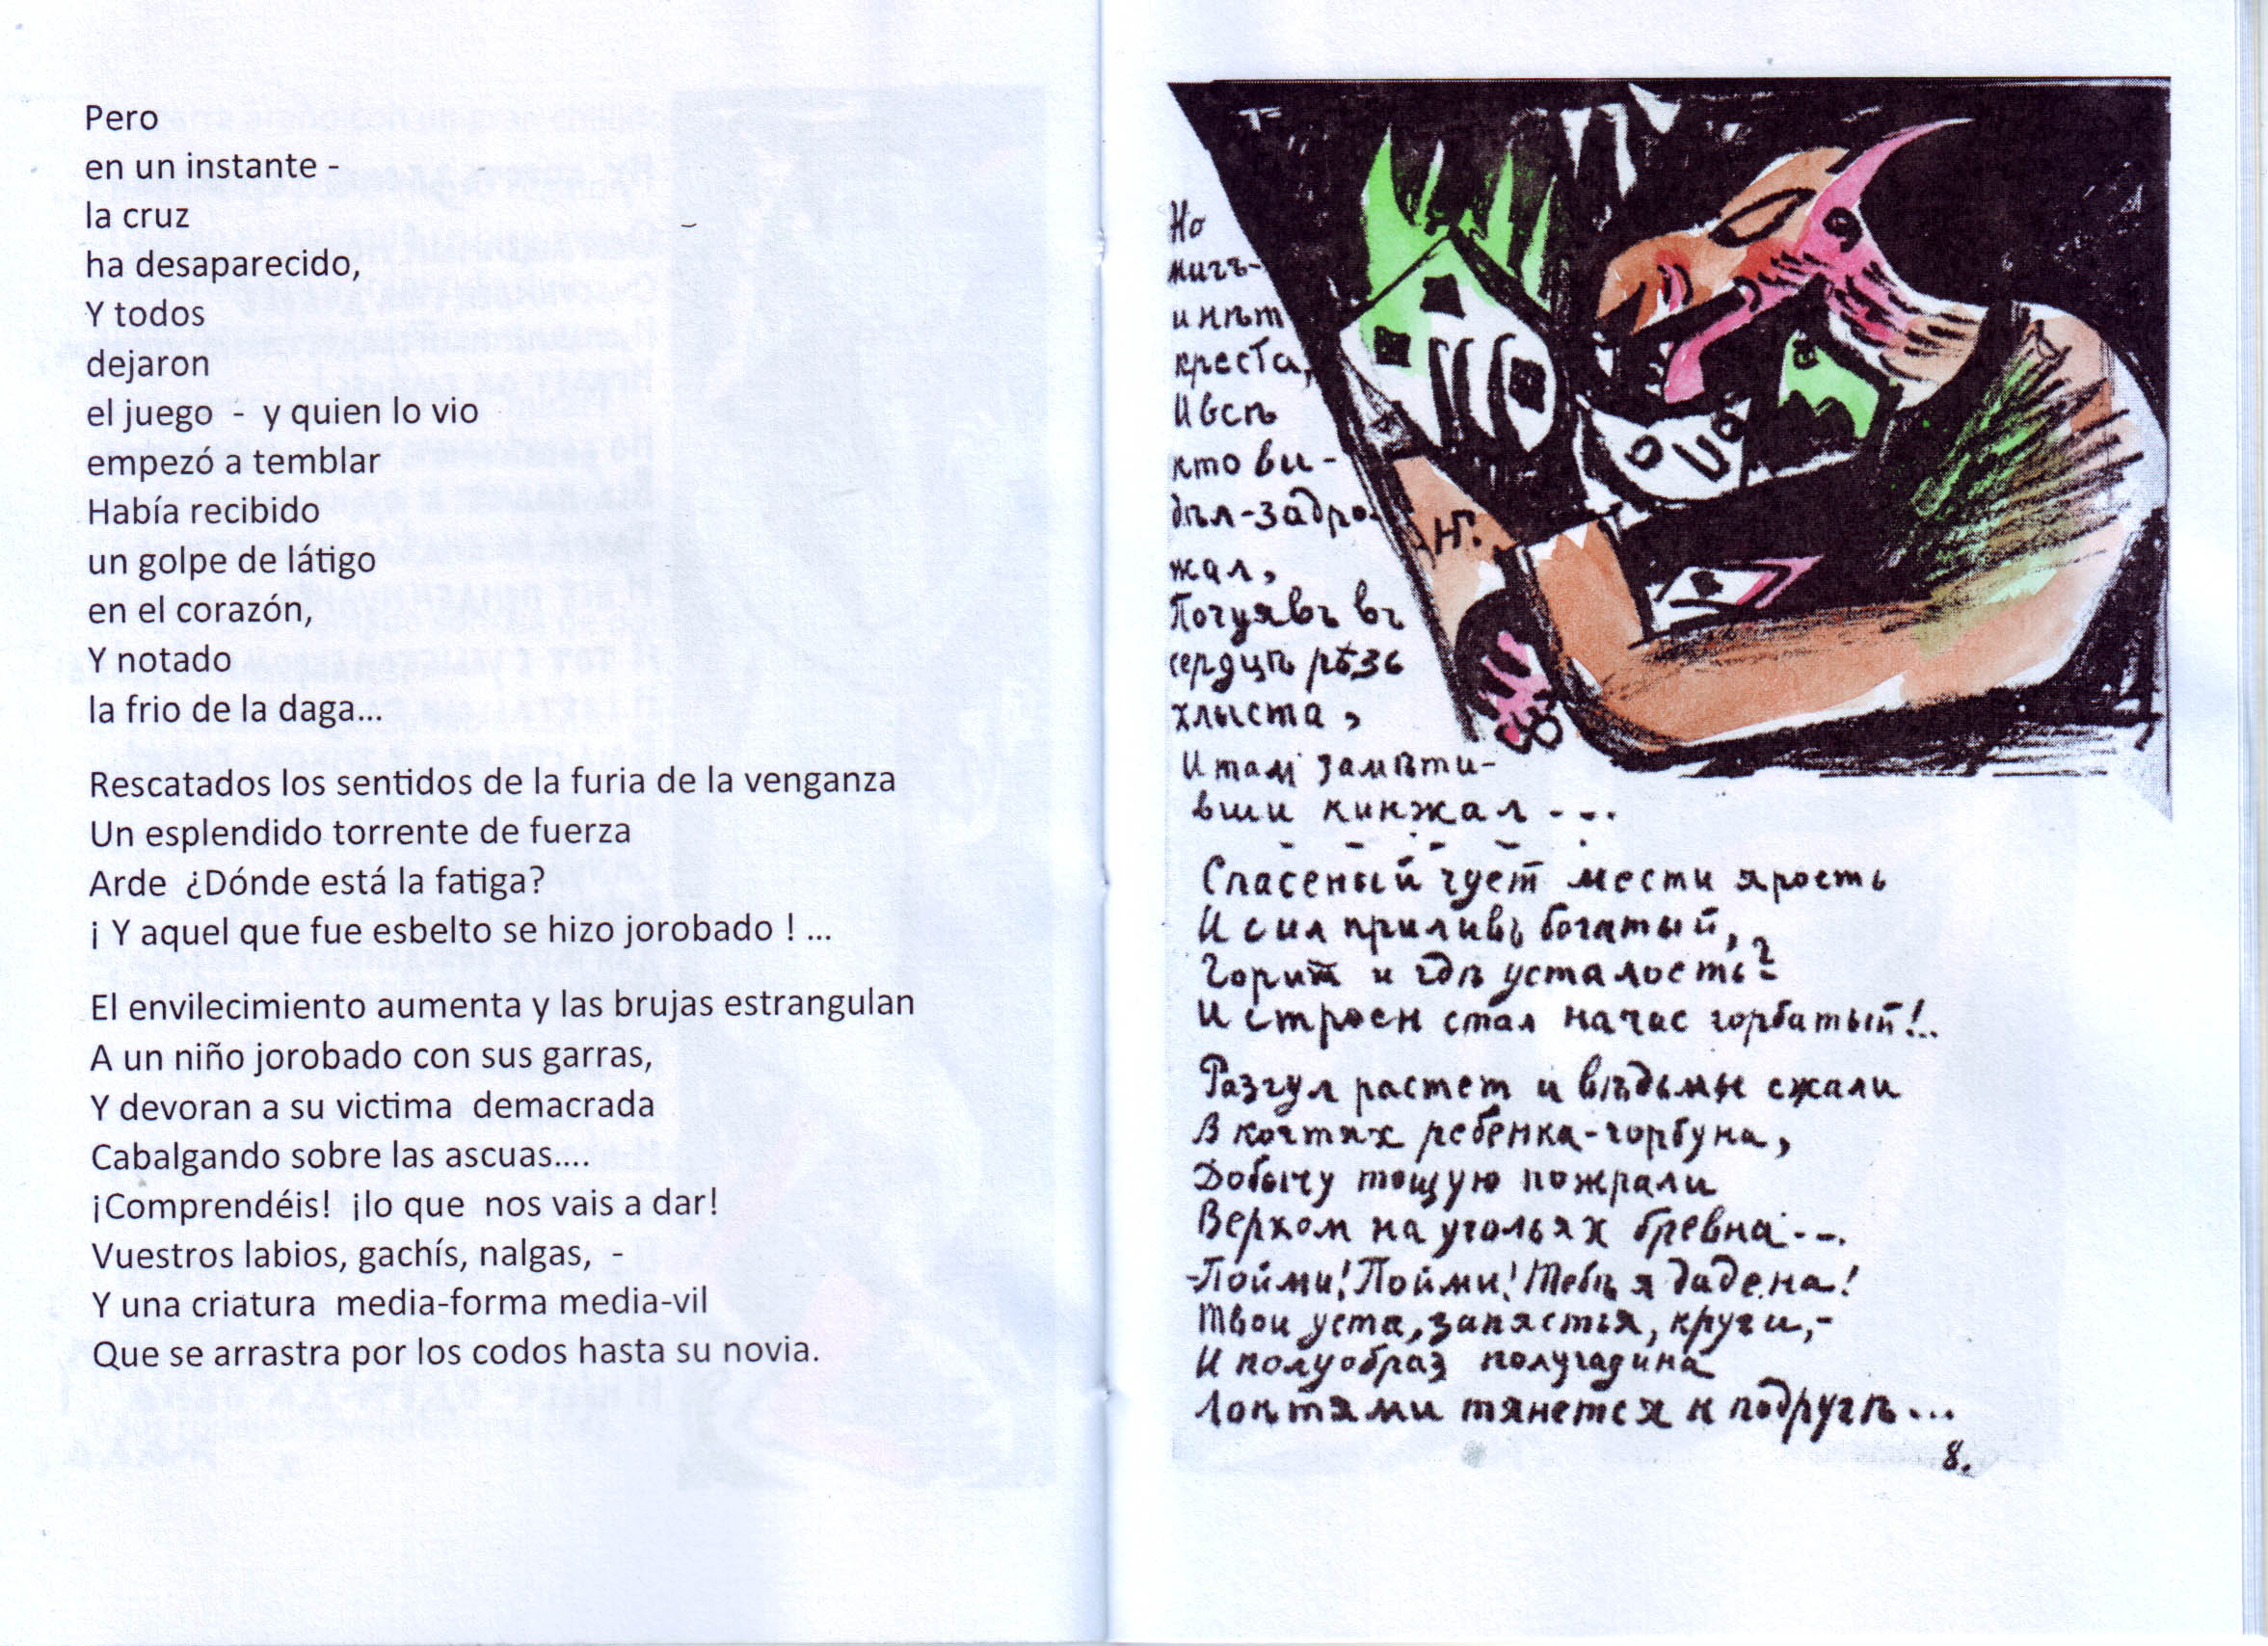 Pero
en un instante -
la cruz
ha desaparecido,
Y todos
dejaron
el juego  -  y quien lo vio
empezó a temblar
Había recibido
un golpe de látigo
en el corazón,
Y notado
la frio de la daga...
Rescatados los sentidos de la furia de la venganza
Un esplendido torrente de fuerza
Arde  ¿Dónde está la fatiga?
¡ Y aquel que fue esbelto se hizo jorobado ! ...
El envilecimiento aumenta y las brujas estrangulan
A un niño jorobado con sus garras,
Y devoran a su victima  demacrada
Cabalgando sobre las ascuas....
¡Comprendéis!  ¡lo que  nos vais a dar!
Vuestros labios, gachís, nalgas,  -
Y una criatura  media-forma media-vil
Que se arrastra por los codos hasta su novia.
Но
мигъ-
и нѣт
креста,
И всѣ
кто ви-
дѣл-задро-
жал,
Почуявъ въ
сердцѣ рѣзь
хлыста,
И там замѣти-
вши кинжал - - .
Спасеный чует мести ярость
И сил приливъ богатый,
Горит и гдѣ усталость?
И строен стал начас горбатый!..
Разгул растет и вѣдьмы сжали
В когтях ребенка-горбуна,
Добычу тощую пожрали
Верхом на угольях бревна - - .
-Пойми! Пойми! Тебѣ я дадена!
Твои уста, запястья, круги,-
И полуобраз полугадина
Локтями тянется к подругѣ...
8.
Н.Г.